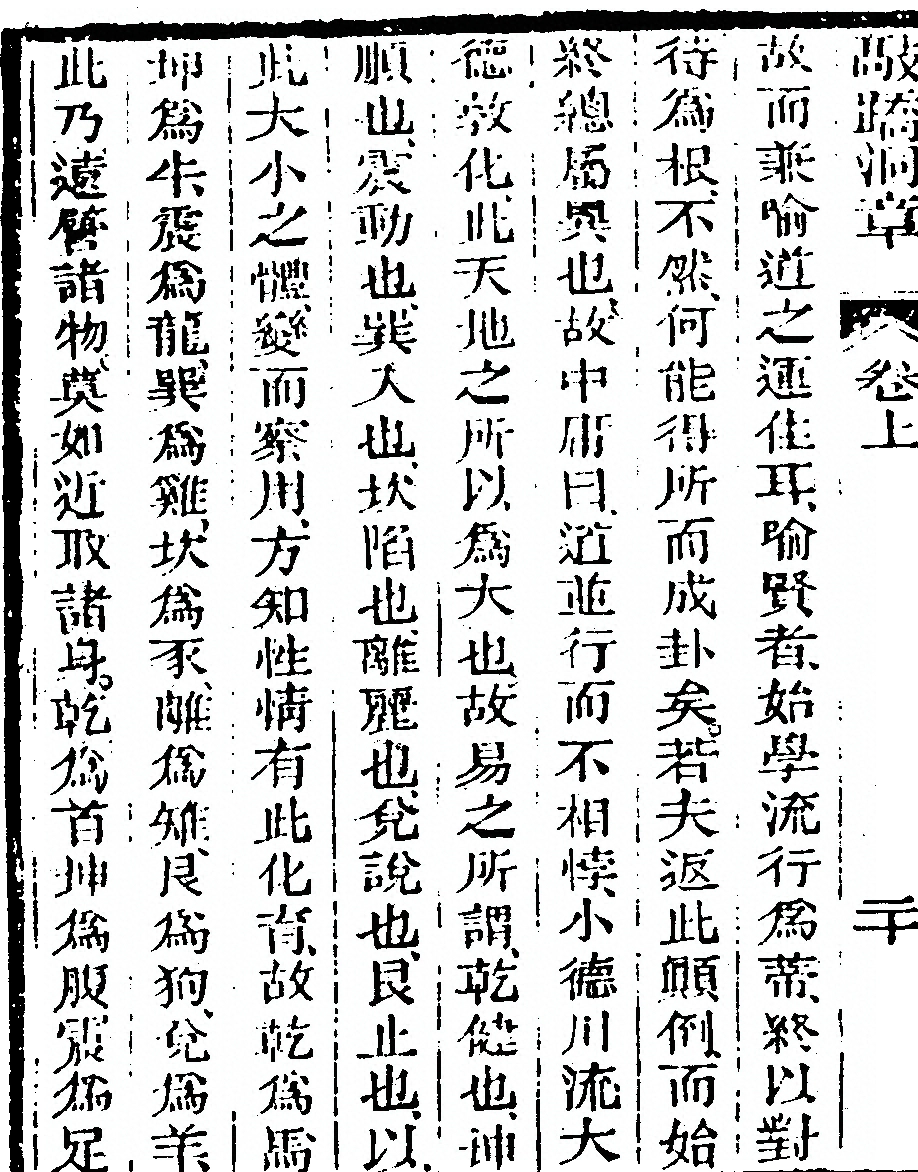 敲蹻洞章 卷上 二十
故而兼喻道之運佳耳、喻賢者、始學流行爲蒂、終以對
待爲根、不然、何能得所而成卦矣。若夫返此顛倒、而始
終總屬異也、故中庸曰、道並行而不相悖、小德川流、大
德敦化、此天地之所以爲大也、故易之所謂、乾健也、坤
順也、震動也、巽入也、坎陷也、離麗也、兌說也、艮止也、以
此大小之體、變而察用、方知性情有此化育、故乾爲馬
坤爲牛、震爲龍、巽爲雞、坎爲豕、離爲雉、艮爲狗、兌爲羊、
此乃遠譬諸物、莫如近取諸身。乾爲首坤爲腹震爲足